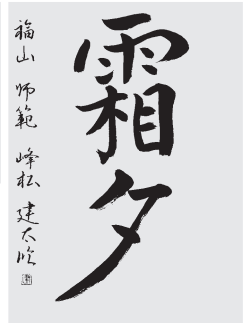 霜夕
福山 師範 峰松 建太